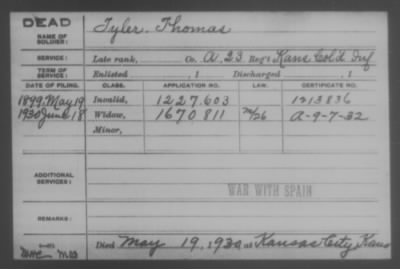 DEAD
NAME OF SOLDIER: Tyler, Thomas
SERVICE: Late rank, Co. A, 23 Reg't Kans Col'd Inf
TERM OF SERVICE: Enlisted , 1 Discharged , 1
DATE OF FILING. CLASS. APPLICATION NO. LAW. CERTIFICATE NO.
1899, May 19 Invalid, 1227.603 1213836
1930 June 18 Widow, 1670811 A-9-7-32
Minor,
ADDITIONAL SERVICES:
WAR WITH SPAIN
REMARKS:
Died May 19, 1930 at Kansas City, Kans